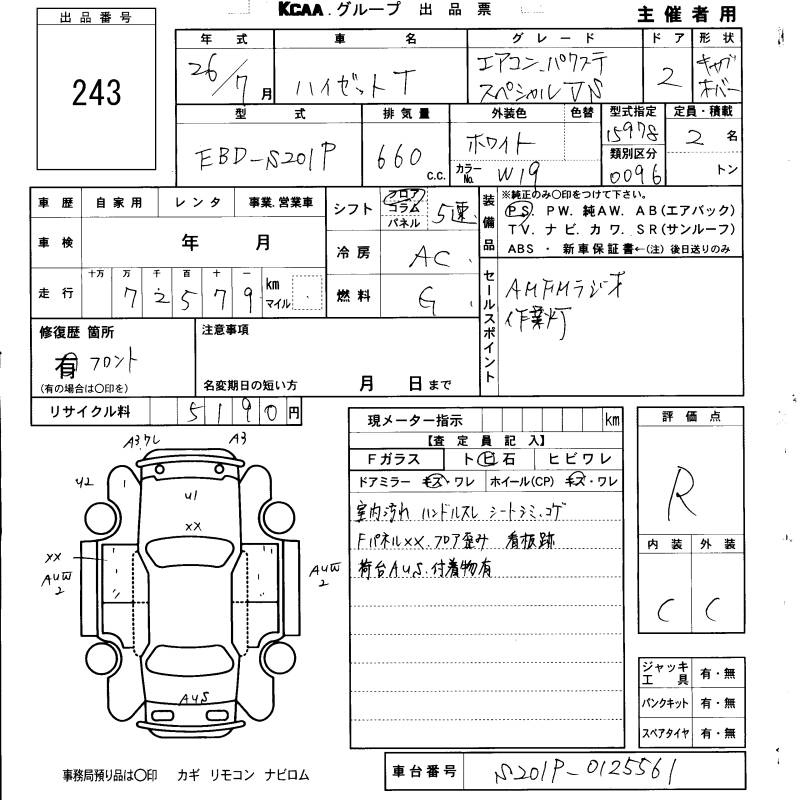 KCAA.グループ 出品票
主催者用
出品番号
243
年式 車名 グレード ドア 形状
26/7月 ハイゼットT エアコン.パワステ スペシャルVS 2 キャブオーバー
型式 排気量 外装色 色替 型式指定 定員・積載
EBD-S201P 660 c.c. ホワイト 15978 2名
カラーNo. W19 類別区分 0096 トン
車歴 自家用 レンタ 事業.営業車
シフト フロア コラム パネル 5速
装備品 ※純正のみ○印をつけて下さい。
PS. PW. 純AW. AB(エアバック)
TV. ナビ. カワ. SR(サンルーフ)
ABS ・ 新車保証書←(注) 後日送りのみ
車検 年 月
冷房 AC
走行 十万 万 千 百 十 一 km マイル
7 2 5 7 9
燃料 G
セールスポイント
AMFMラジオ
作業灯
修復歴 箇所
有 フロント
(有の場合は○印を)
注意事項
名変期日の短い方 月 日まで
リサイクル料 5190円
現メーター指示 km
【査定員記入】
Fガラス トビ石 ヒビワレ
ドアミラー キズ・ワレ ホイール(CP) キズ・ワレ
室内汚れ ハンドルスレ シートシミ.コゲ
Fパネルxx.フロア歪み 看板跡
荷台AuS.付着物有
評価点
R
内装 外装
C C
A3.ワレ A3
U2
U1
xx
xx
AUW
2
AUW
2
AuS
ジャッキ工具 有・無
パンクキット 有・無
スペアタイヤ 有・無
事務局預り品は○印 カギ リモコン ナビロム
車台番号 S201P-0125561